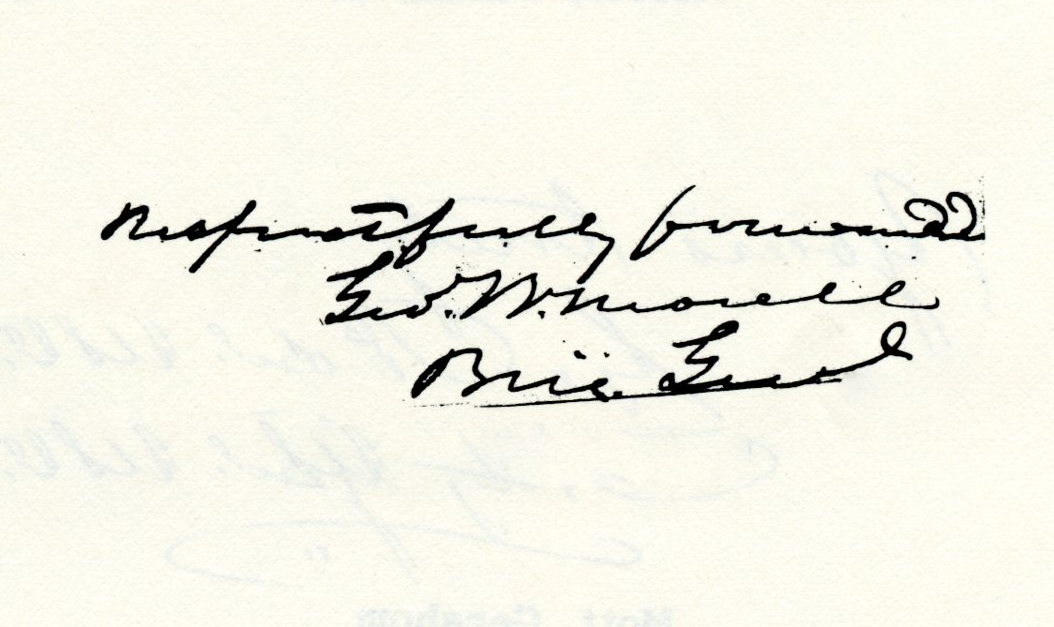 Respectfully forwarded
Geo. W. Morell
Brig. Genl